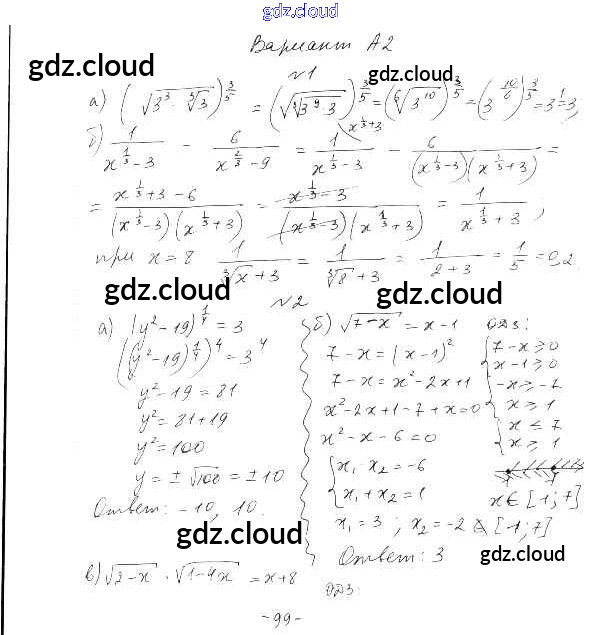 gdz.cloud
Вариант А2
gdz.cloud
gdz.cloud
№1
а) (√(3³·∛3))^(3/5) = (√(∛(3⁹·3)))^(3/5) = (⁶√(3¹⁰))^(3/5) = (3^(10/6))^(3/5) = 3¹ = 3;
б) 1/(x^(1/3) − 3) − 6/(x^(2/3) − 9) = 1/(x^(1/3) − 3) − 6/((x^(1/3) − 3)(x^(1/3) + 3)) =
x^(1/3)+3
= (x^(1/3) + 3 − 6)/((x^(1/3) − 3)(x^(1/3) + 3)) = (x^(1/3) − 3)/((x^(1/3) − 3)(x^(1/3) + 3)) = 1/(x^(1/3) + 3);
при x = 8 1/(∛x + 3) = 1/(∛8 + 3) = 1/(2 + 3) = 1/5 = 0,2
gdz.cloud
gdz.cloud
№2
а) (y² − 19)^(1/4) = 3
((y² − 19)^(1/4))⁴ = 3⁴
y² − 19 = 81
y² = 81 + 19
y² = 100
y = ± √100 = ± 10
Ответ: − 10, 10.
б) √(7 − x) = x − 1
7 − x = (x − 1)²
7 − x = x² − 2x + 1
x² − 2x + 1 − 7 + x = 0
x² − x − 6 = 0
{ x₁ x₂ = −6
x₁ + x₂ = 1
x₁ = 3; x₂ = −2 ∉ [1; 7]
Ответ: 3
ОДЗ:
{ 7 − x ≥ 0
x − 1 ≥ 0
{ −x ≥ −7
x ≥ 1
{ x ≤ 7
x ≥ 1
x ∈ [1; 7]
gdz.cloud
gdz.cloud
в) √(2 − x) · √(1 − 4x) = x + 8
ОДЗ:
- 99 -
gdz.cloud